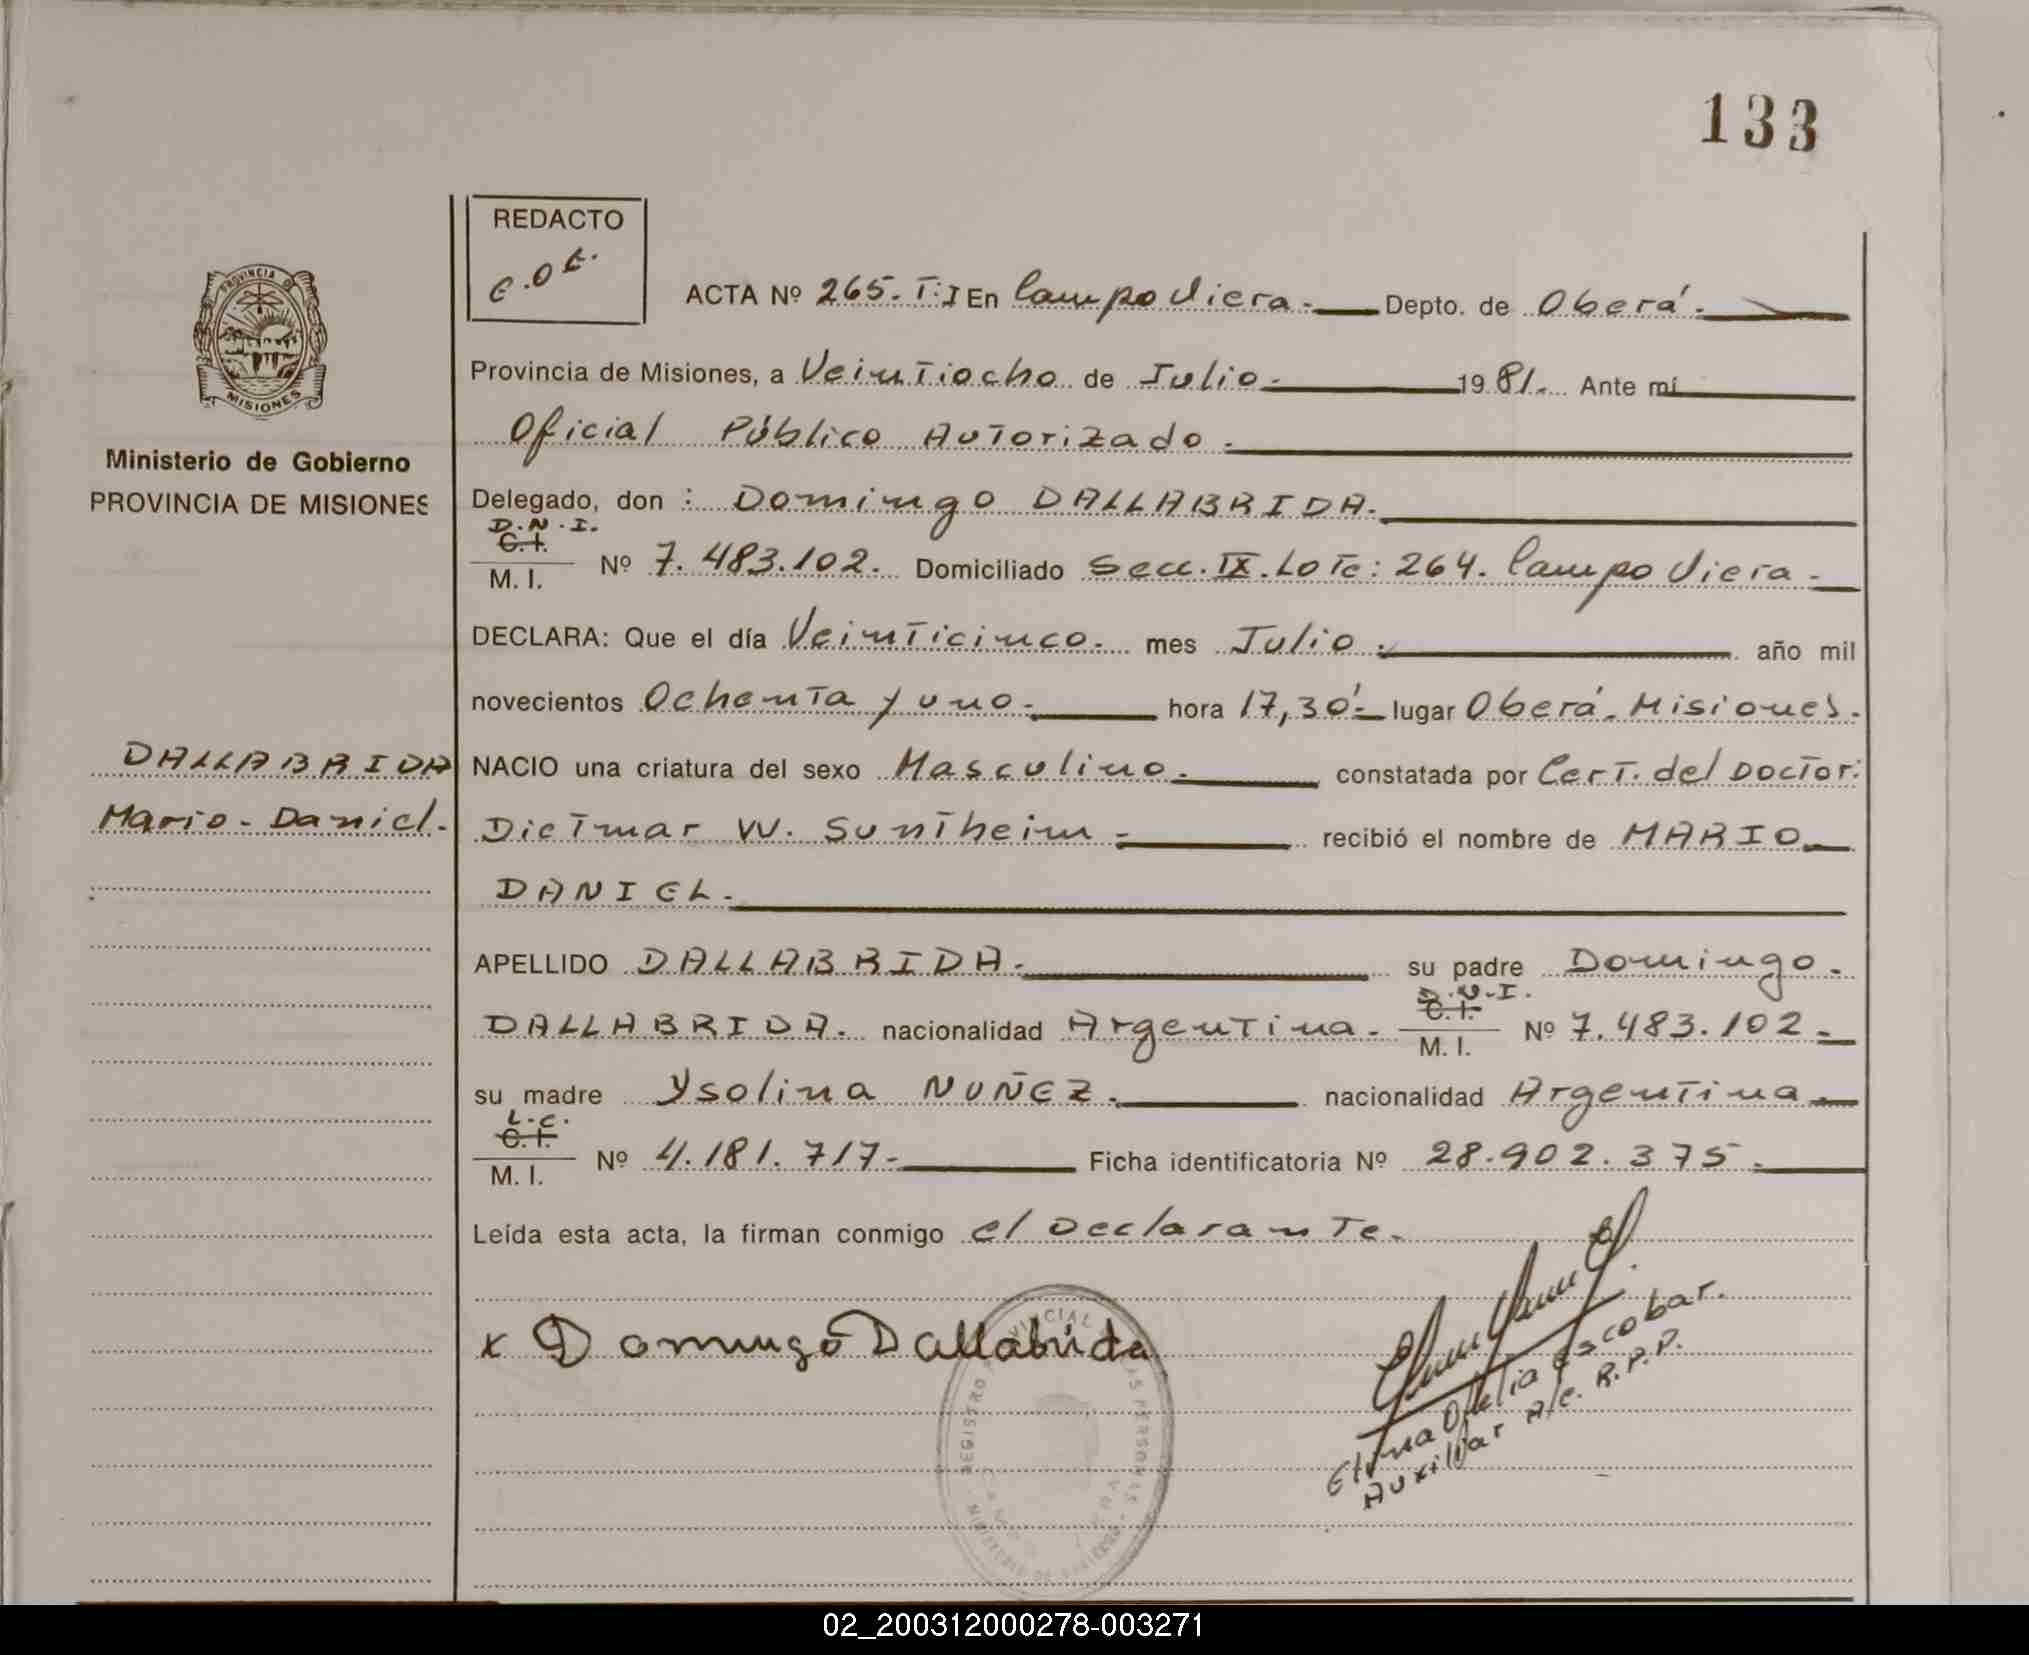 133
REDACTO
e.o.e.
PROVINCIA DE
MISIONES
Ministerio de Gobierno
PROVINCIA DE MISIONES
ACTA Nº 265. T: I En Campo Viera.- Depto. de Oberá.-
Provincia de Misiones, a Veintiocho de Julio.- 1981.- Ante mí
Oficial Público Autorizado.-
Delegado, don : Domingo DALLABRIDA.-
D.N.I.
C.I.
M.I. Nº 7.483.102. Domiciliado Secc. IX. Lote: 264. Campo Viera.-
DECLARA: Que el día Veinticinco. mes Julio.- año mil
novecientos Ochenta y uno.- hora 17,30'- lugar Oberá. Misiones.
DALLABRIDA
Mario-Daniel.
NACIO una criatura del sexo Masculino.- constatada por Cert. del Doctor:
Dietmar W. Suntheim.- recibió el nombre de MARIO
DANIEL.-
APELLIDO DALLABRIDA.- su padre Domingo.
DALLABRIDA. nacionalidad Argentina.- D.N.I. C.I. M.I. Nº 7.483.102.-
su madre Ysolina NUÑEZ.- nacionalidad Argentina.-
L.C.
C.I.
M.I. Nº 4.181.717.- Ficha identificatoria Nº 28.902.375.-
Leída esta acta, la firman conmigo el Declarante.
x Domingo Dallabrida
Elma Odelia Escobar.
Auxiliar A/c. R.P.P.
REGISTRO PROVINCIAL LAS PERSONAS
02_200312000278-003271